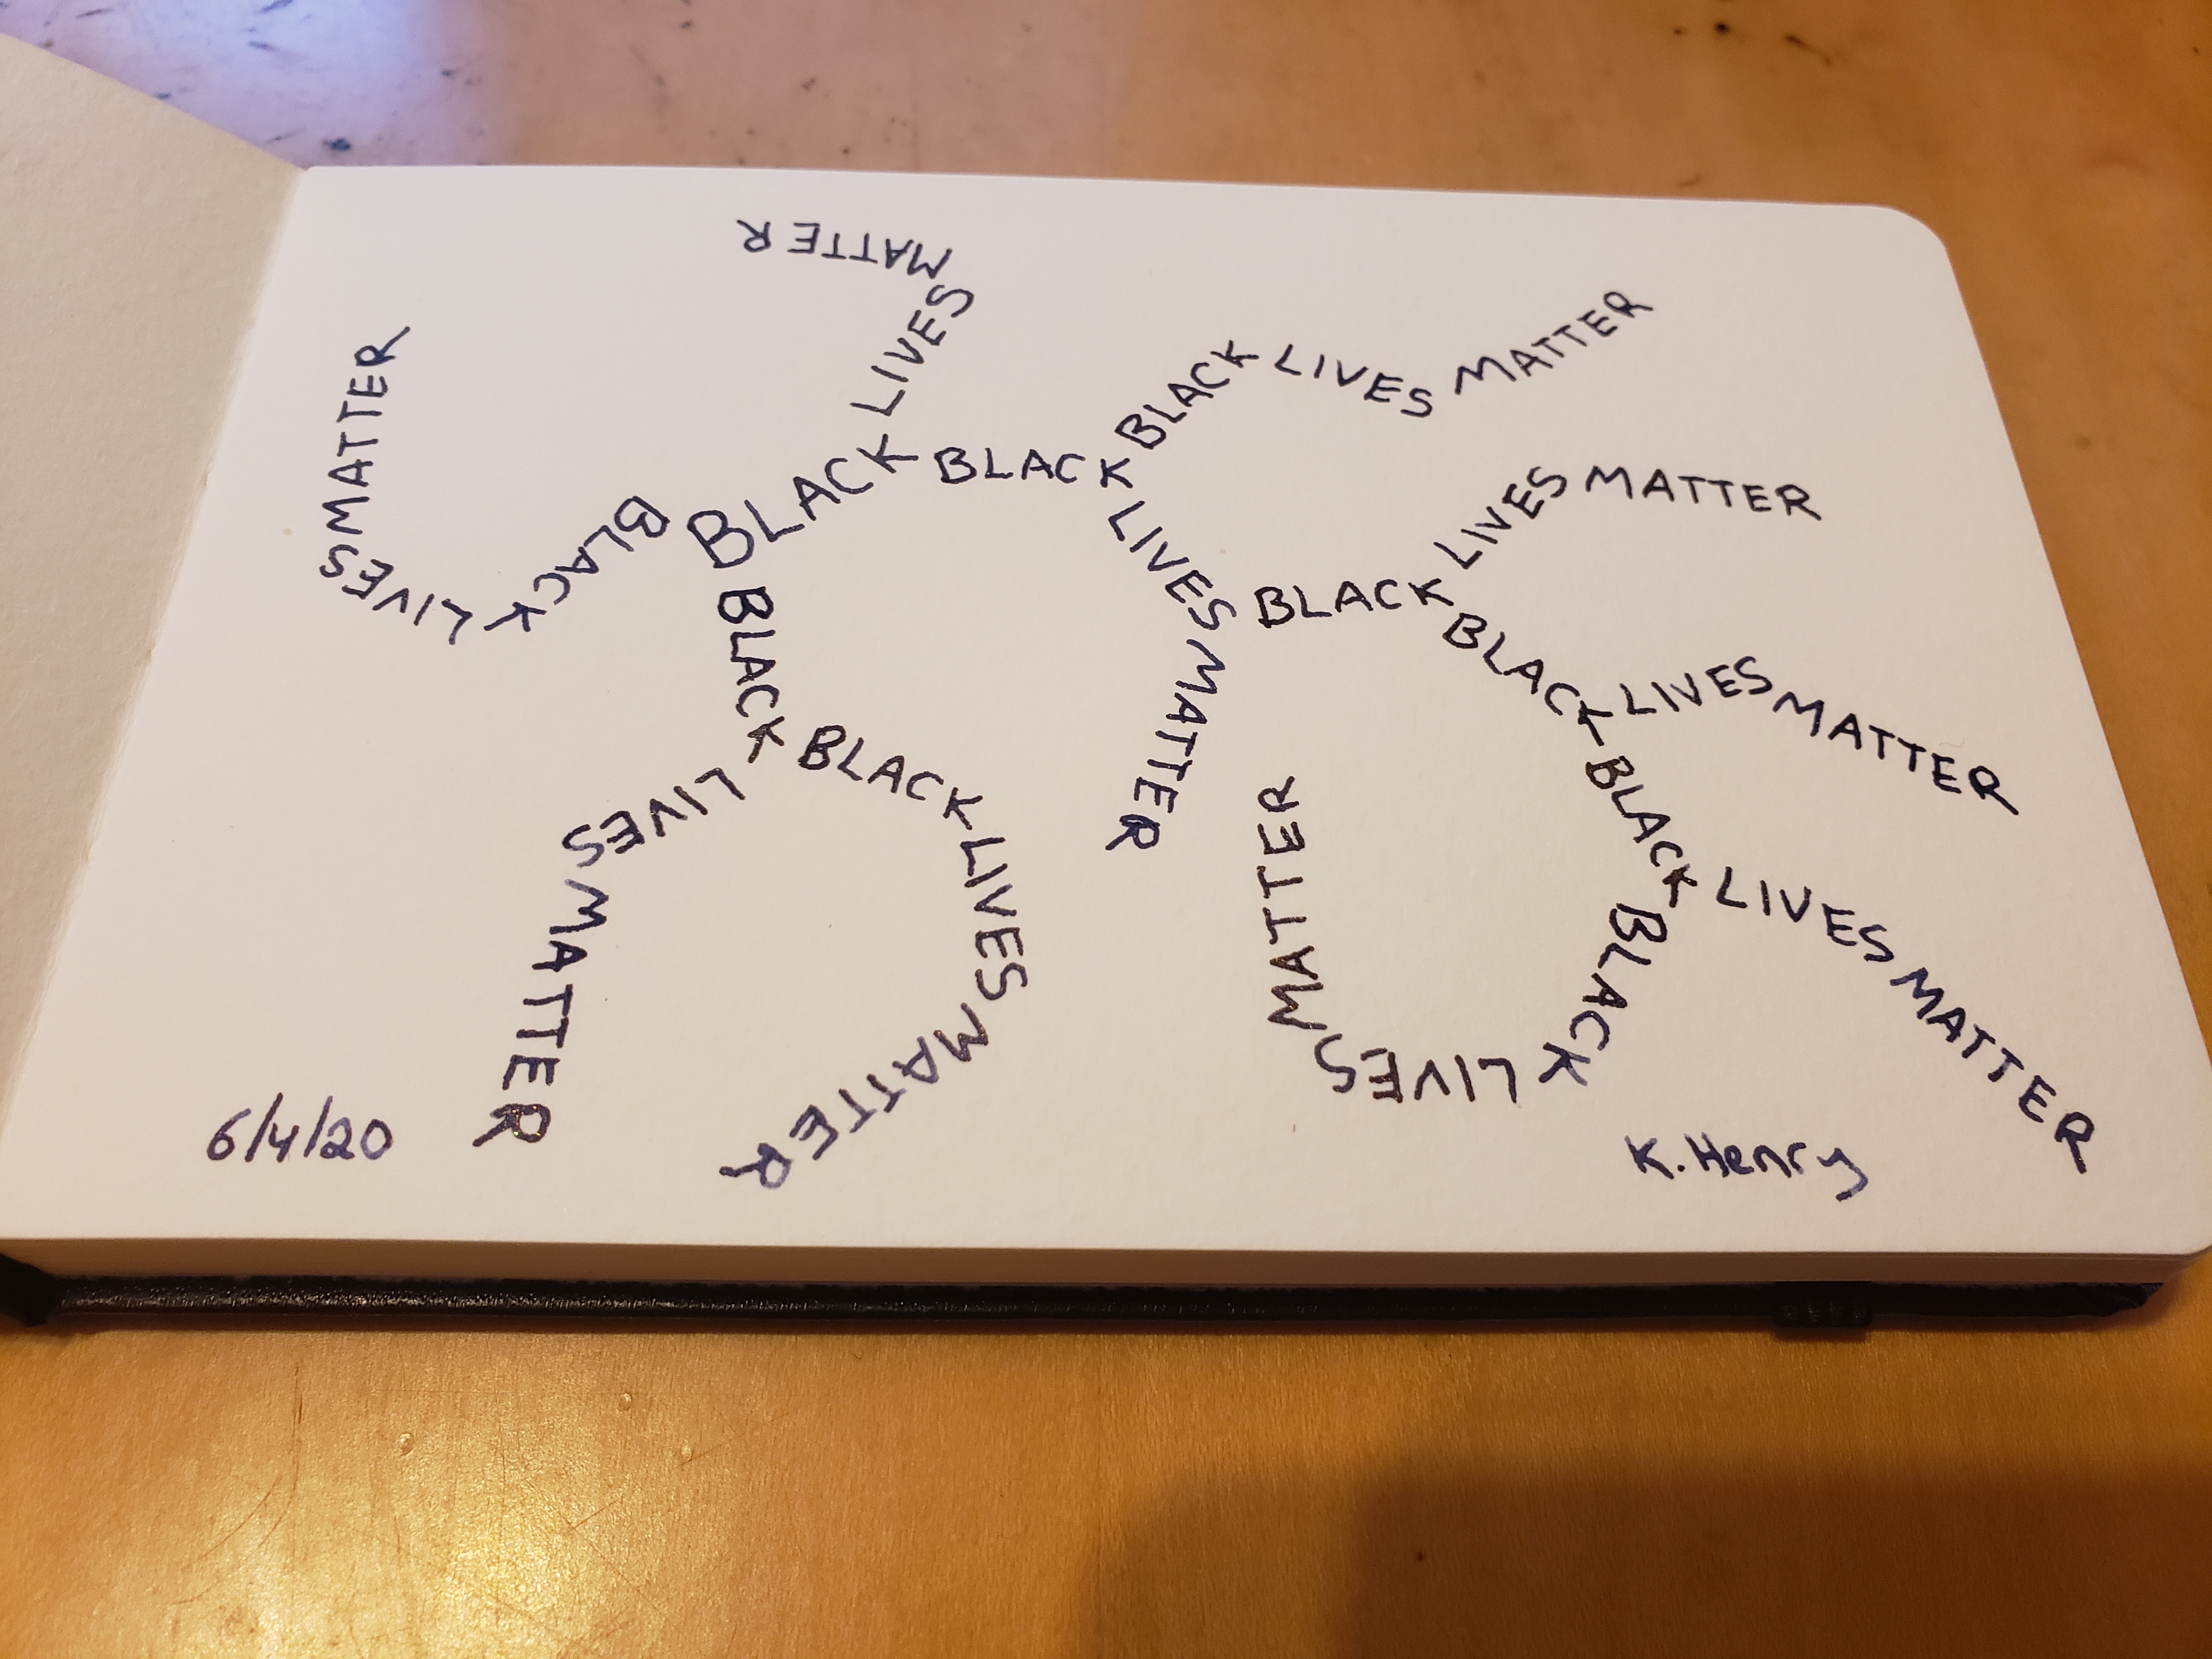 BLACK LIVES MATTER
BLACK LIVES MATTER
BLACK LIVES MATTER
BLACK LIVES MATTER
BLACK LIVES MATTER
BLACK LIVES MATTER
BLACK LIVES MATTER
BLACK LIVES MATTER
BLACK LIVES MATTER
BLACK LIVES MATTER
6/4/20
K. Henry